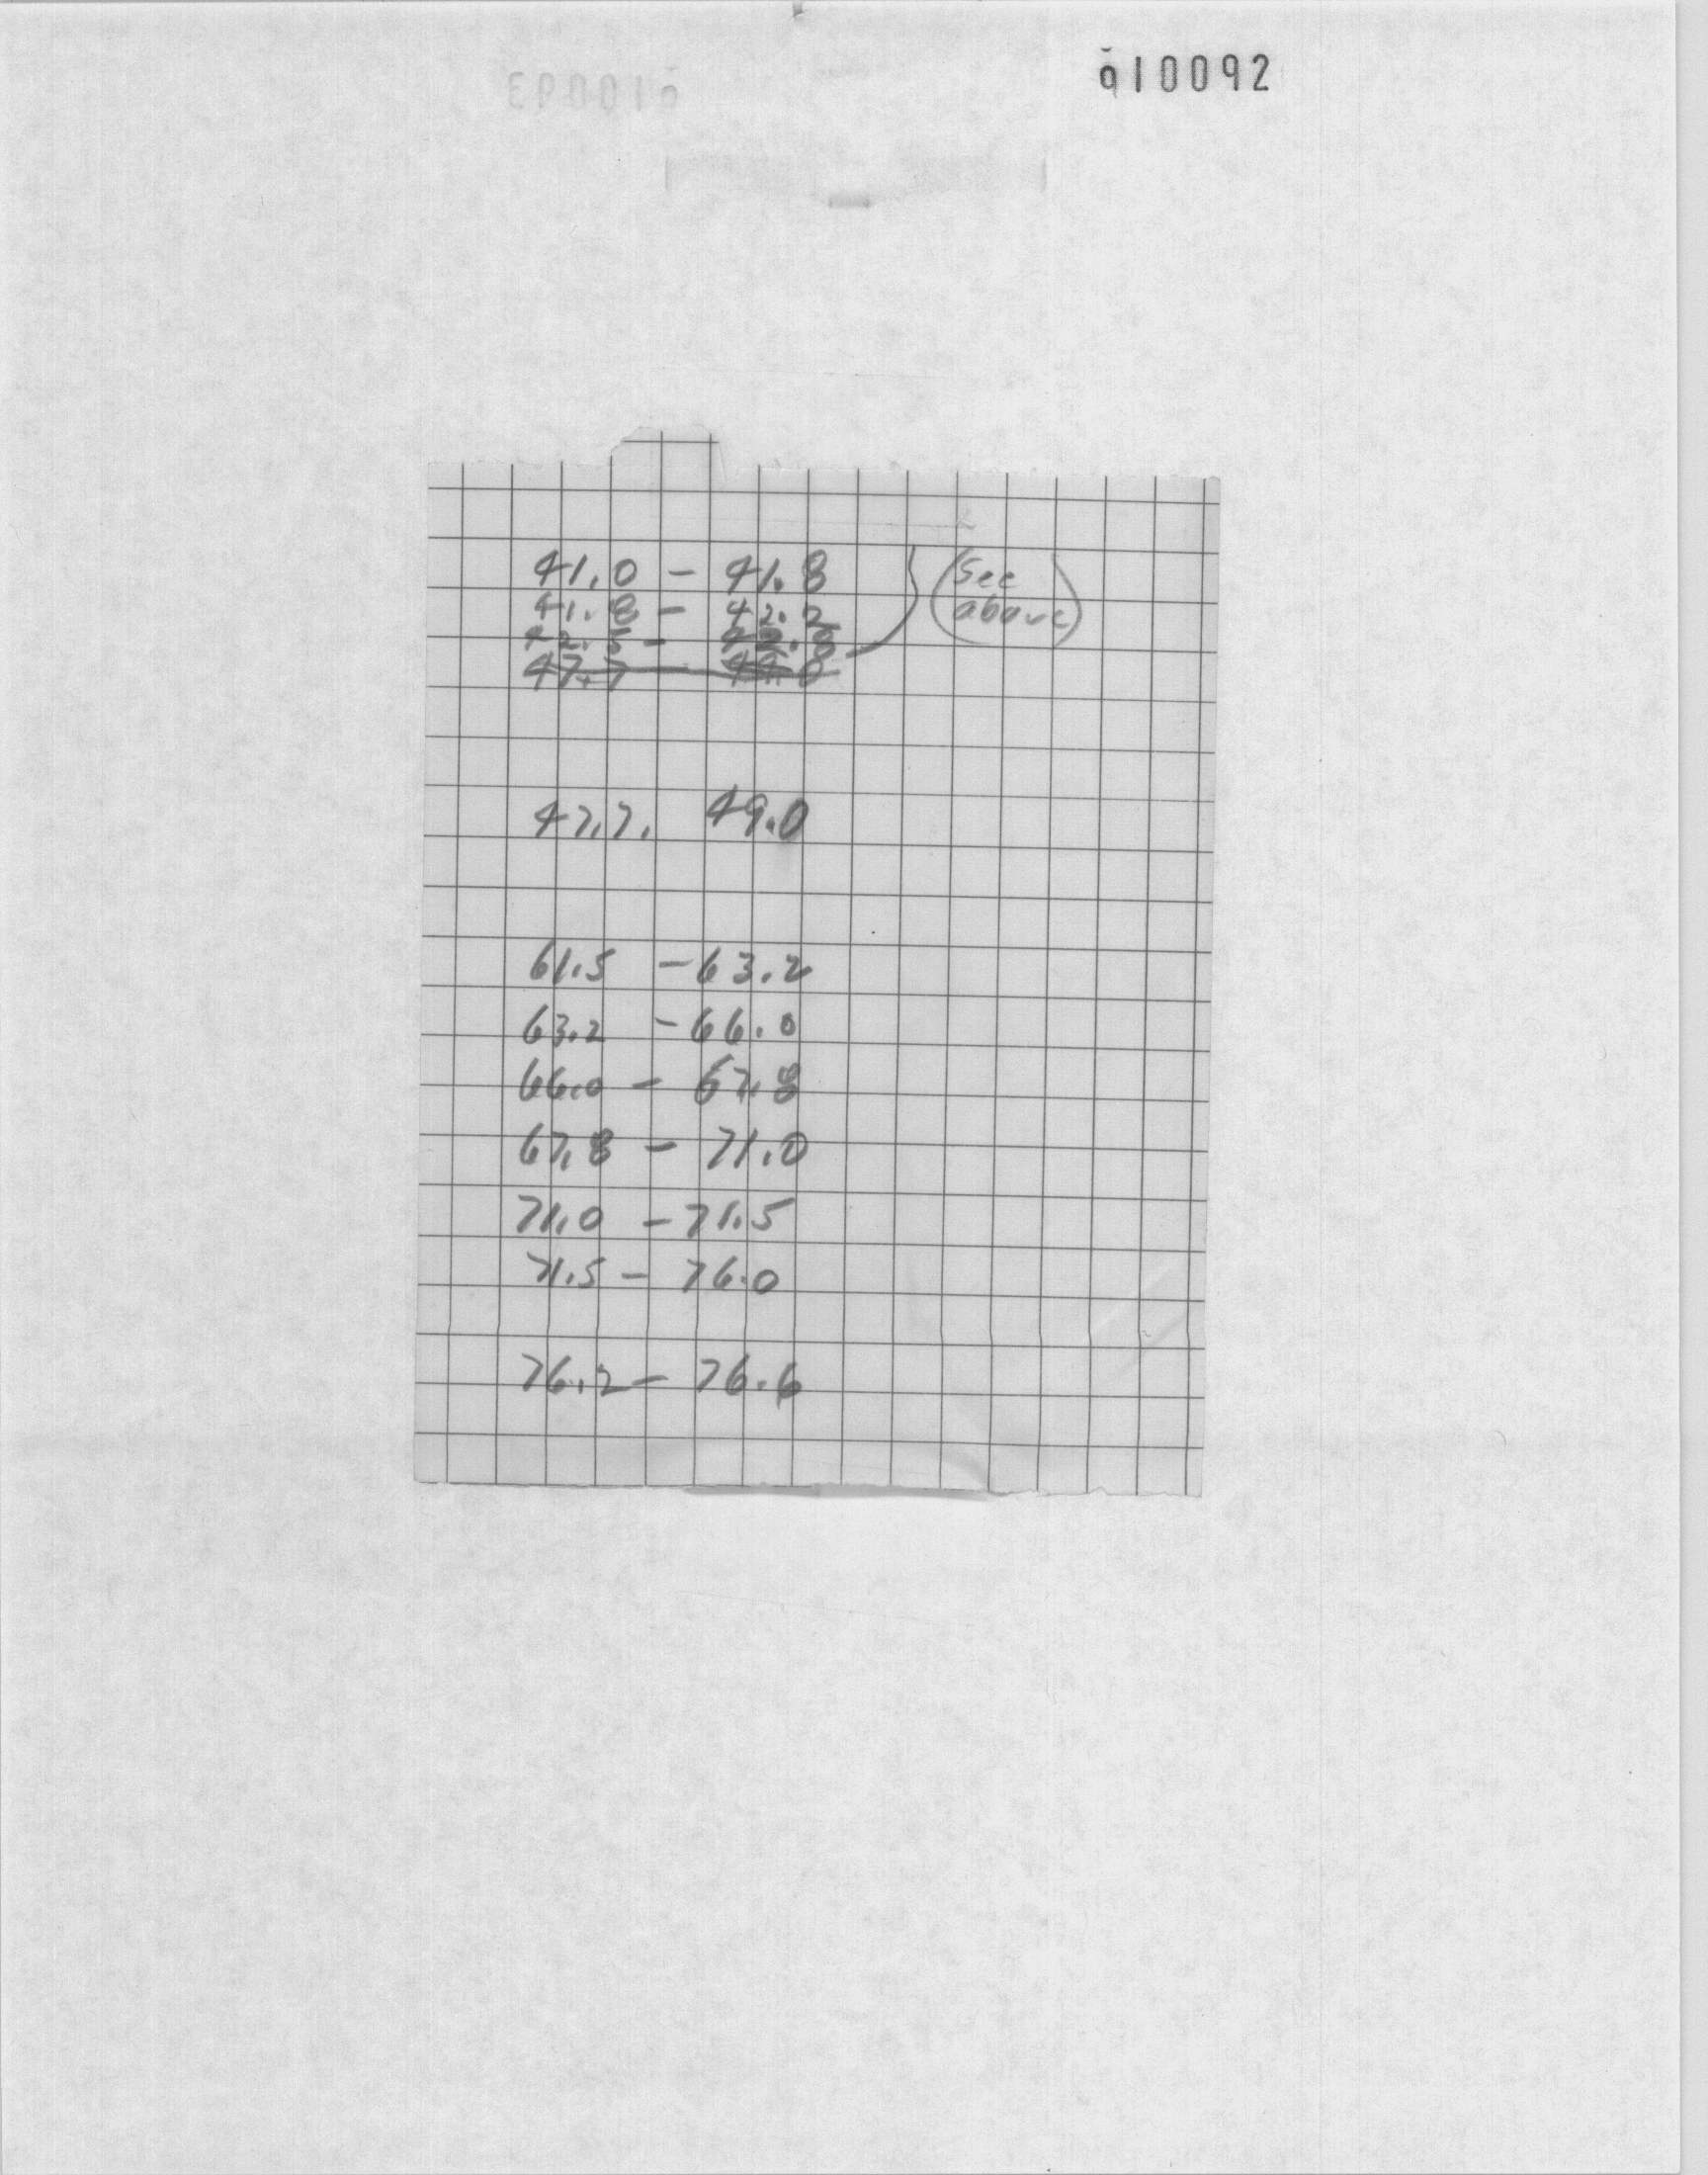 010092
41.0 - 41.8
41.8 - 42.2
42.5 - 42.8
(see above)
47.7 - 49.0
47.7. 49.0
61.5 - 63.2
63.2 - 66.0
66.0 - 67.8
67.8 - 71.0
71.0 - 71.5
71.5 - 76.0
76.2 - 76.6